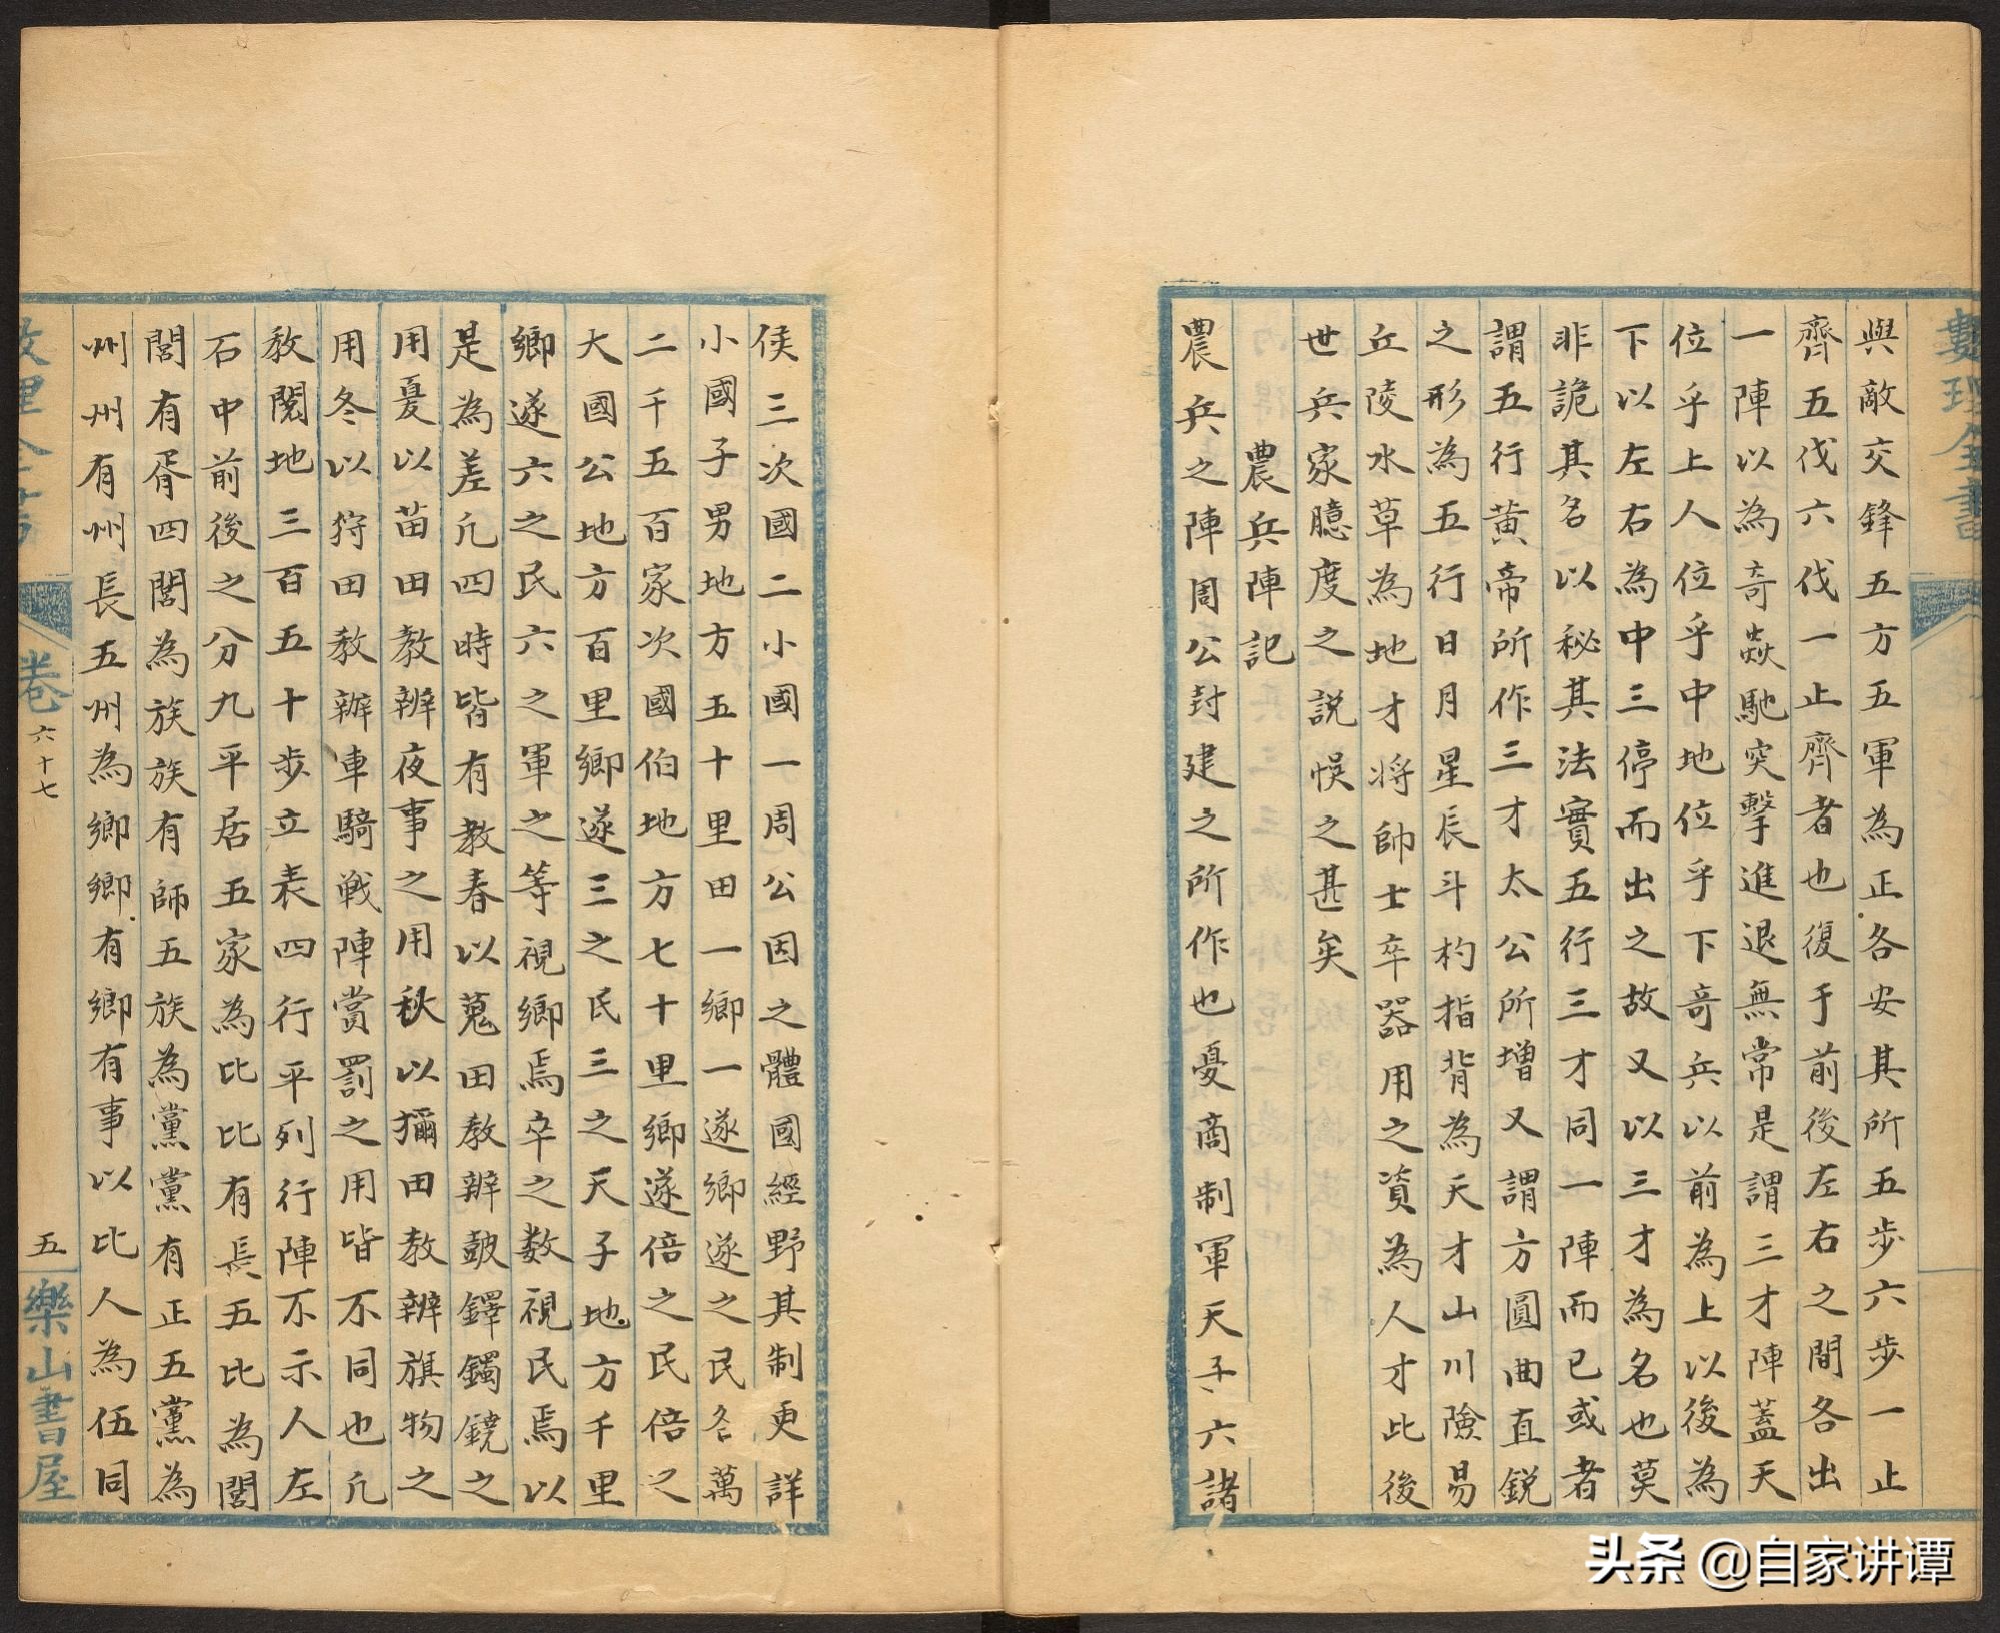 數理全書
與敵交鋒五方五軍為正各安其所五步六步一止
齊五伐六伐一止齊者也復于前後左右之間各出
一陣以為奇焱馳突擊進退無常是謂三才陣蓋天
位乎上人位乎中地位乎下奇兵以前為上以後為
下以左右為中三停而出之故又以三才為名也莫
非詭其名以秘其法實五行三才同一陣而已或者
謂五行黃帝所作三才太公所增又謂方圓曲直銳
之形為五行日月星辰斗杓指背為天才山川險易
丘陵水草為地才将帥士卒器用之資為人才此後
世兵家臆度之説悞之甚矣
農兵陣記
農兵之陣周公封建之所作也憂商制軍天子六諸
侯三次國二小國一周公因之體國經野其制更詳
小國子男地方五十里田一鄉一遂鄉遂之民各萬
二千五百家次國伯地方七十里鄉遂倍之民倍之
大國公地方百里鄉遂三之民三之天子地方千里
鄉遂六之民六之軍之等視鄉焉卒之数視民焉以
是為差凢四時皆有教春以蒐田教辨鼓鐸鐲鐃之
用憂以苗田教辨夜事之用秋以獮田教辨旗物之
用冬以狩田教辨車騎戦陣賞罰之用皆不同也凢
教閱地三百五十步立表四行平列行陣不示人左
右中前後之分九平居五家為比比有長五比為閭
閭有胥四閭為族族有師五族為黨黨有正五黨為
州州有州長五州為鄉鄉有鄉有事以比人為伍同
卷六十七
五
樂山書屋
头条 @自家讲谭